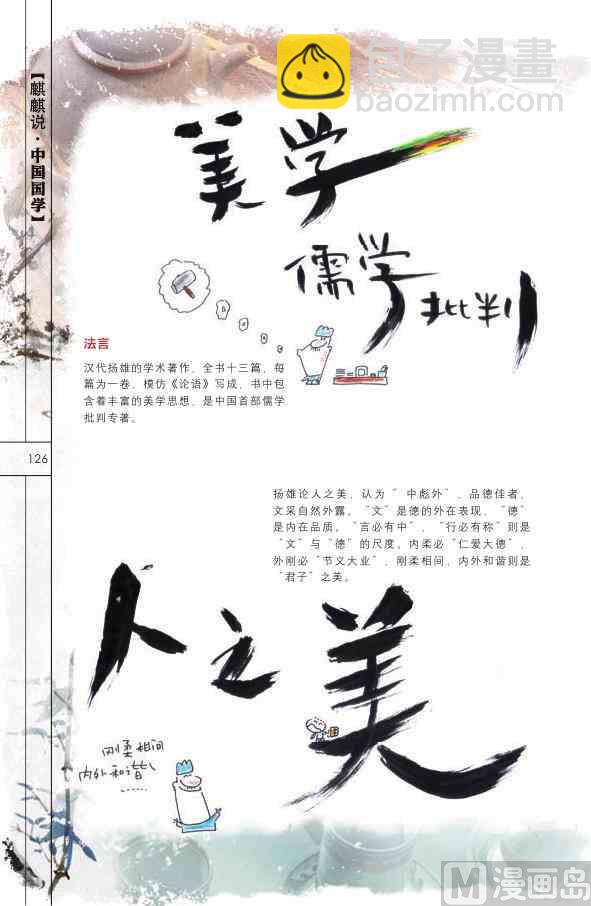 包子漫畫
baozimh.com
【麒麟说·中国国学】
美学
儒学批判
法言
汉代扬雄的学术著作，全书十三篇，每
篇为一卷，模仿《论语》写成，书中包
含着丰富的美学思想，是中国首部儒学
批判专著。
126
扬雄论人之美，认为“中彪外”，品德佳者，
文采自然外露。“文”是德的外在表现，“德”
是内在品质。“言必有中”，“行必有称”则是
“文”与“德”的尺度。内柔必“仁爱大德”，
外刚必“节义大业”，刚柔相间，内外和谐则是
“君子”之美。
人之美
刚柔相间
内外和谐
……
M漫画岛